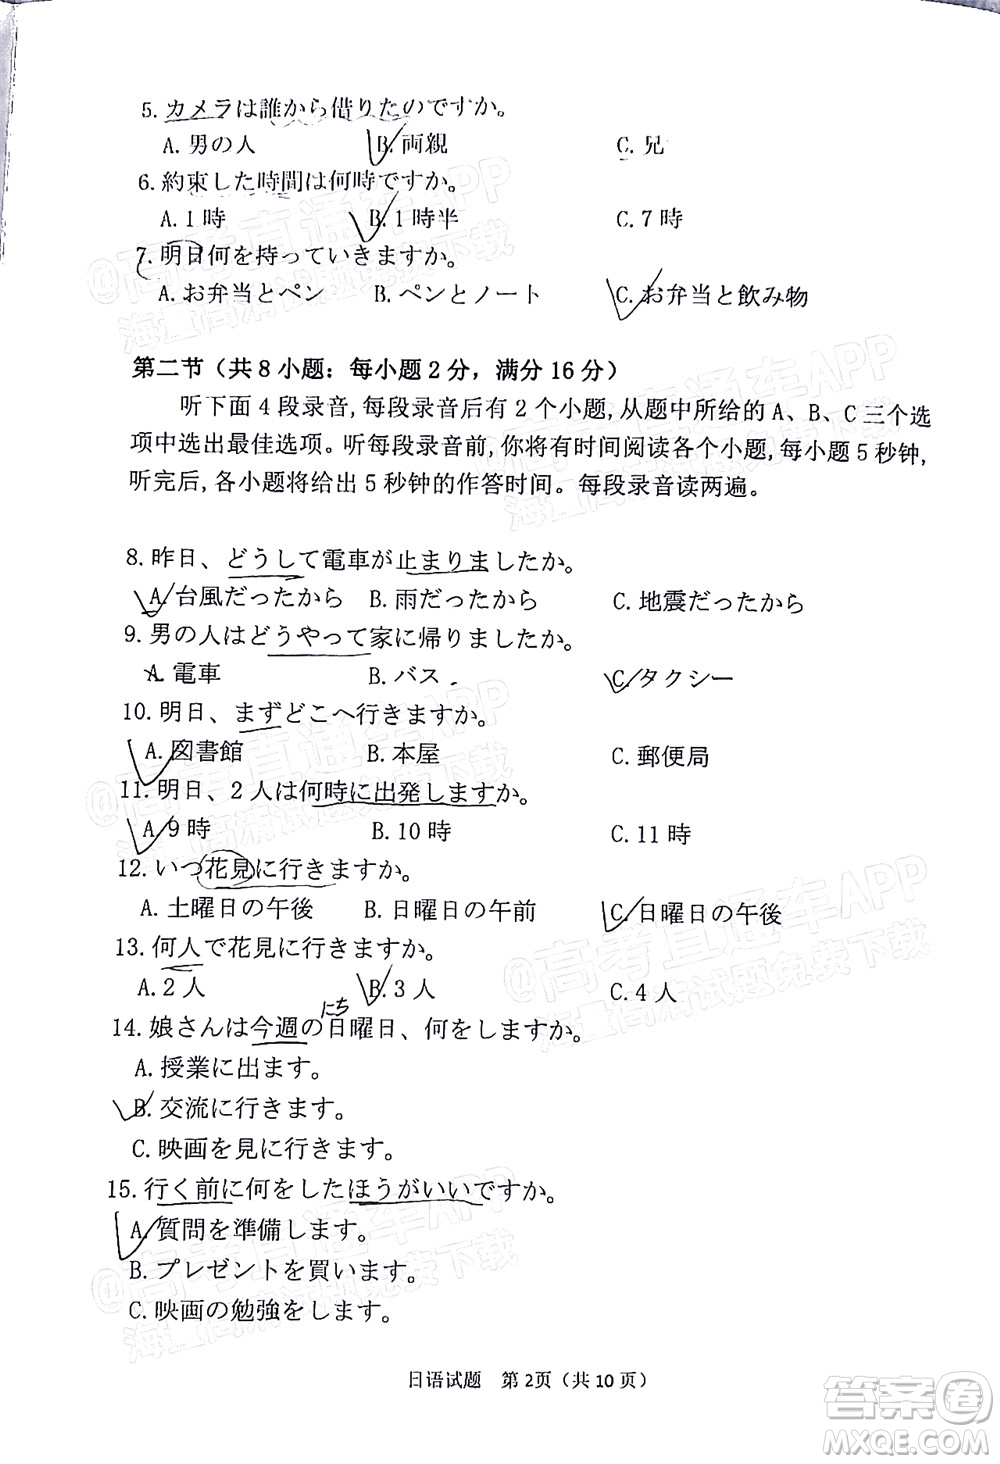 5. カメラは誰から借りたのですか。
A. 男の人 B. 両親 C. 兄
6. 約束した時間は何時ですか。
A. 1時 B. 1時半 C. 7時
7. 明日何を持っていきますか。
A. お弁当とペン B. ペンとノート C. お弁当と飲み物
第二节（共8小题：每小题2分，满分16分）
听下面4段录音,每段录音后有2个小题,从题中所给的A、B、C三个选
项中选出最佳选项。听每段录音前,你将有时间阅读各个小题,每小题5秒钟,
听完后,各小题将给出5秒钟的作答时间。每段录音读两遍。
8. 昨日、どうして電車が止まりましたか。
A. 台風だったから B. 雨だったから C. 地震だったから
9. 男の人はどうやって家に帰りましたか。
A. 電車 B. バス C. タクシー
10. 明日、まずどこへ行きますか。
A. 図書館 B. 本屋 C. 郵便局
11. 明日、2人は何時に出発しますか。
A. 9時 B. 10時 C. 11時
12. いつ花見に行きますか。
A. 土曜日の午後 B. 日曜日の午前 C. 日曜日の午後
13. 何人で花見に行きますか。
A. 2人 B. 3人 C. 4人
にち
14. 娘さんは今週の日曜日、何をしますか。
A. 授業に出ます。
B. 交流に行きます。
C. 映画を見に行きます。
15. 行く前に何をしたほうがいいですか。
A. 質問を準備します。
B. プレゼントを買います。
C. 映画の勉強をします。
日语试题 第2页（共10页）
@高考直通车APP
海量高清试题免费下载
答案卷
MXQE.COM